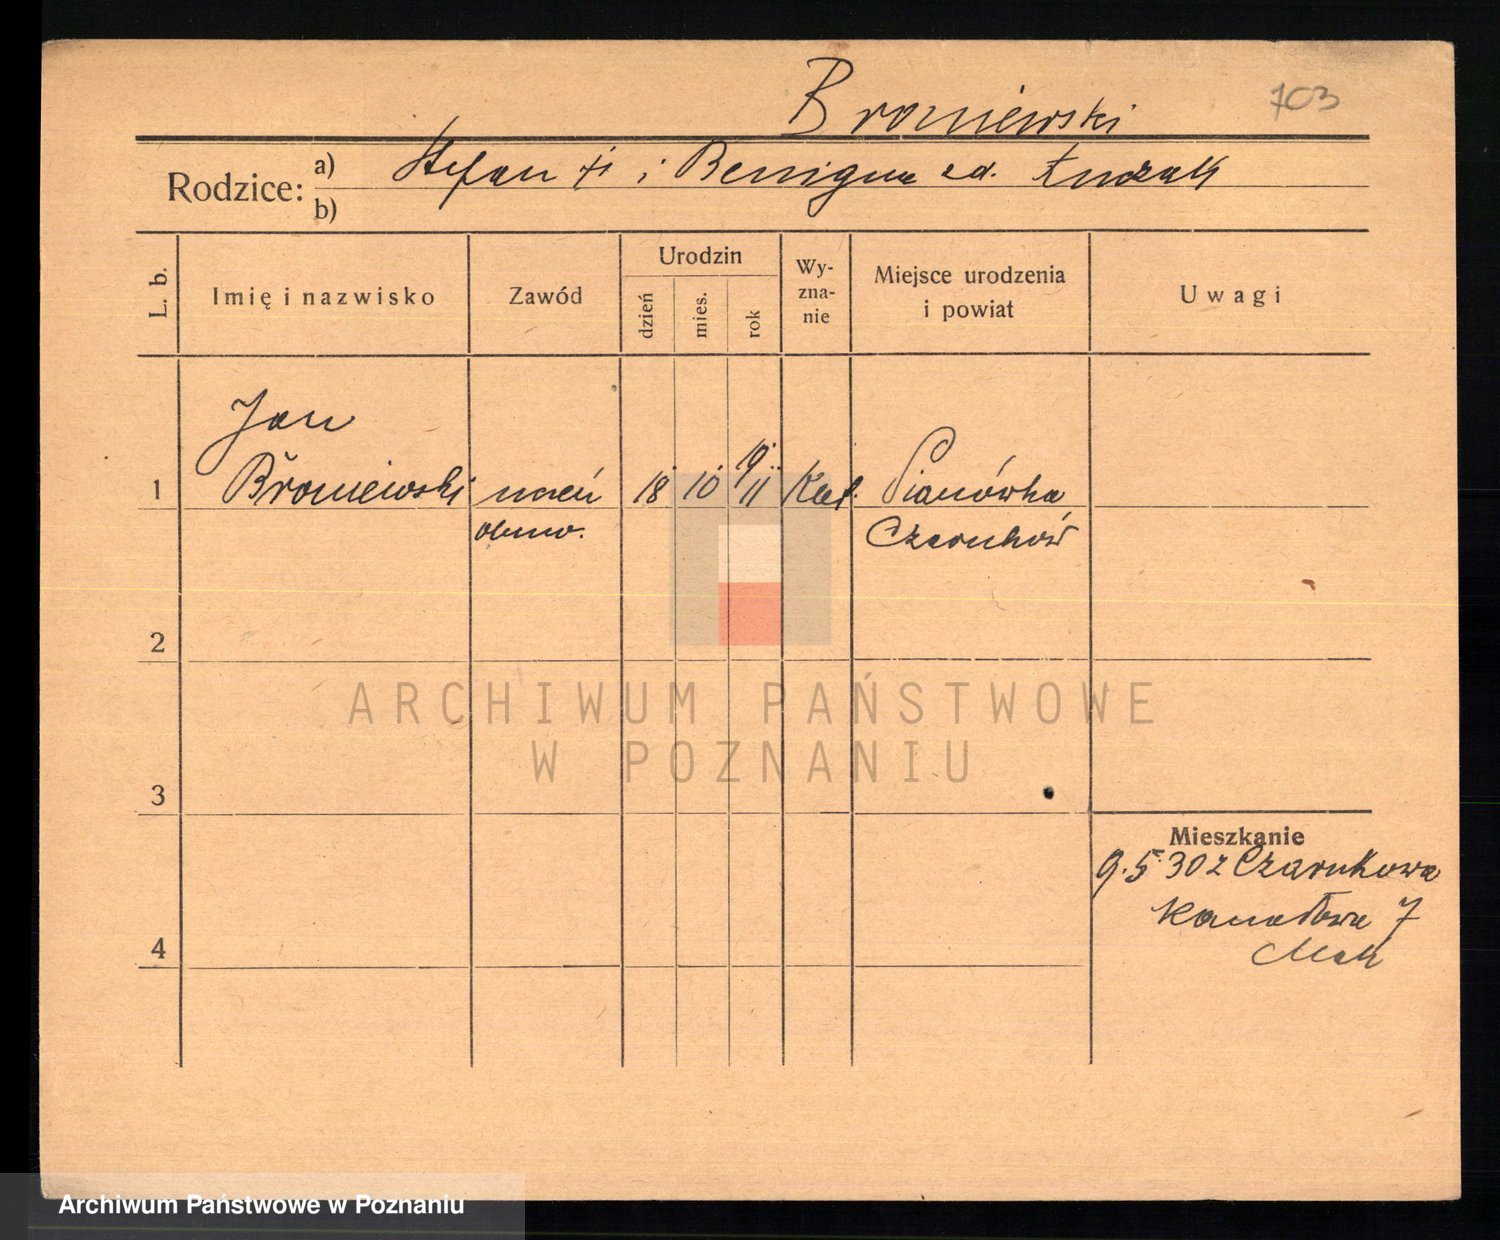 Broniewski
703
Rodzice: a) Stefan i Benigna
b)
L. b.
Imię i nazwisko
Zawód
Urodzin
dzień
mies.
rok
Wy-
zna-
nie
Miejsce urodzenia
i powiat
Uwagi
Jan
1 Broniewski uczeń 18 10 19 11 Kat. Pianówka
Czarnków
2
3
4
Mieszkanie
9.5.30 z Czarnkowa
Kanałowa 7
ARCHIWUM PAŃSTWOWE
W POZNANIU
Archiwum Państwowe w Poznaniu